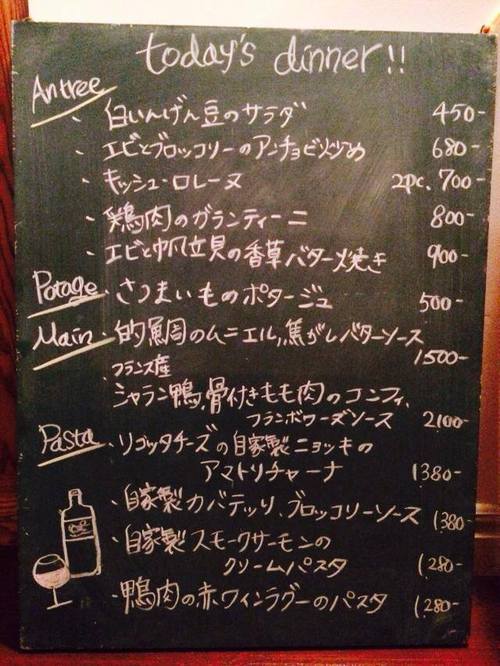 today's dinner!!
Antree
・白いんげん豆のサラダ 450-
・エビとブロッコリーのアンチョビ炒め 680-
・キッシュ・ロレーヌ 2pc. 700-
・鶏肉のガランティーニ 800-
・エビと帆立貝の香草バター焼き 900-
Potage ・さつまいものポタージュ 500-
Main ・的鯛のムニエル,焦がしバターソース
1500-
・フランス産
シャラン鴨、骨付きもも肉のコンフィ、
フランボワーズソース 2,100-
Pasta ・リコッタチーズの自家製ニョッキの
アマトリチャーナ 1,380-
・自家製カバテッリ、ブロッコリーソース 1,380-
・自家製スモークサーモンの
クリームパスタ 1,280-
・鴨肉の赤ワインラグーのパスタ 1,280-